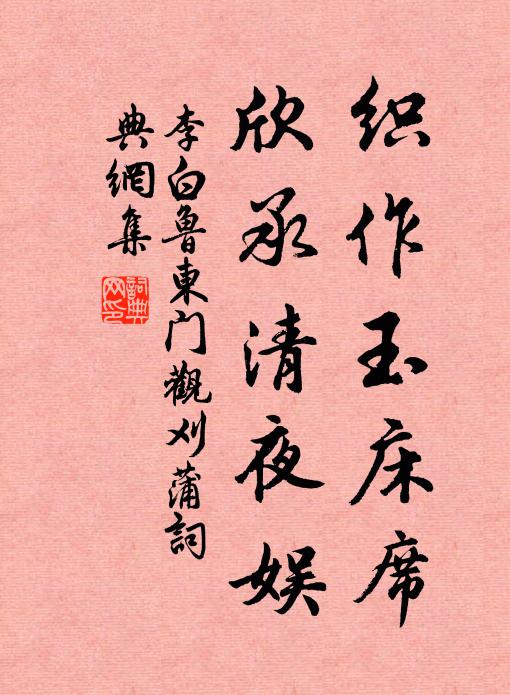 织作玉床席
欣承清夜娱
李白鲁東门觀刈蒲詞
典網集
詞典网印